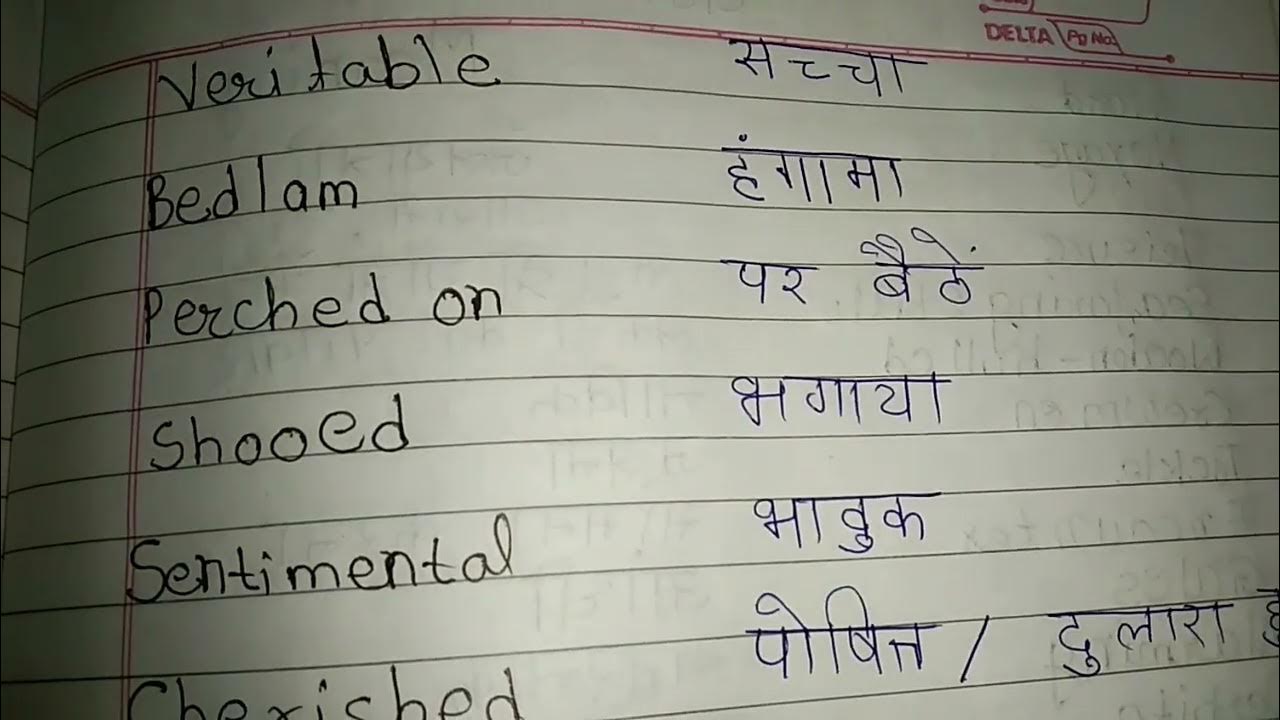 DELTA Pg No.
Veritable सच्चा
Bedlam हंगामा
Perched on पर बैठें
Shooed भगाया
Sentimental भावुक
Cherished पोषित / दुलारा